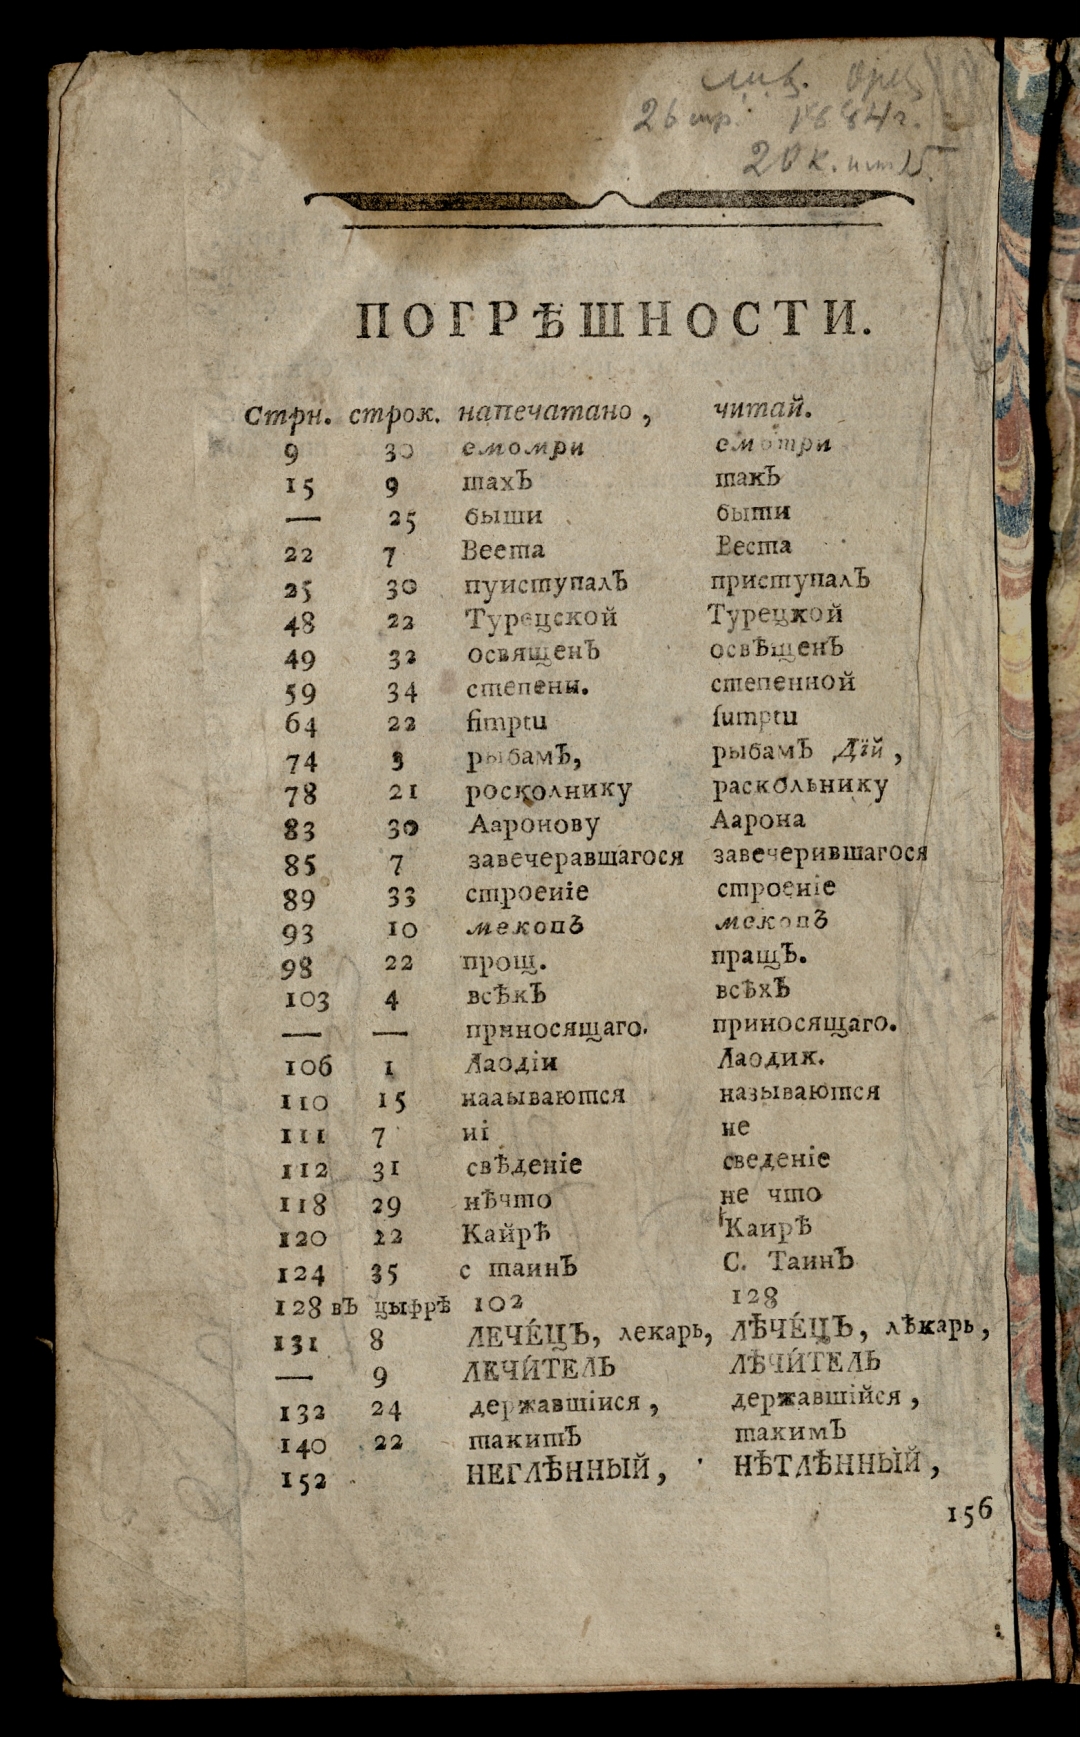 26 1884 г.
20 к.
ПОГРѢШНОСТИ.
Стрн. строк. напечатано, читай.
9 30 емомри емотри
15 9 шахЪ такЪ
— 25 быши быти
22 7 Веета Веста
25 30 пуиступалЪ приступалЪ
48 22 Турецской Турецкой
49 32 освященЪ освѣщенЪ
59 34 степены. степенной
64 22 fimptu fumptu
74 3 рыбамЪ, рыбамЪ Дїй,
78 21 росколнику раскольнику
83 30 Ааронову Аарона
85 7 завечеравшагося завечерившагося
89 33 строеніе строеніе
93 10 мекопЪ мекопЪ
98 22 прощ. пращЪ.
103 4 всѣкЪ всѣхЪ
— — приносящаго. приносящаго.
106 1 Лаодіи Лаодик.
110 15 нааываются называются
111 7 ні не
112 31 свѣденіе сведеніе
118 29 нѣчто не что
120 22 Кайрѣ Каирѣ
124 35 с таинЪ С. ТаинЪ
128 вЪ цыфрѣ 102 128
131 8 ЛЕЧЕ́ЦЪ, лекарь, ЛѢЧЕ́ЦЪ, лѣкарь,
— 9 ЛЕЧИ́ТЕЛЬ ЛѢЧИ́ТЕЛЬ
132 24 державшіися, державшійся,
140 22 такитЪ такимЪ
152 НЕГЛѢННЫЙ, НѢТЛѢННЫЙ,
156